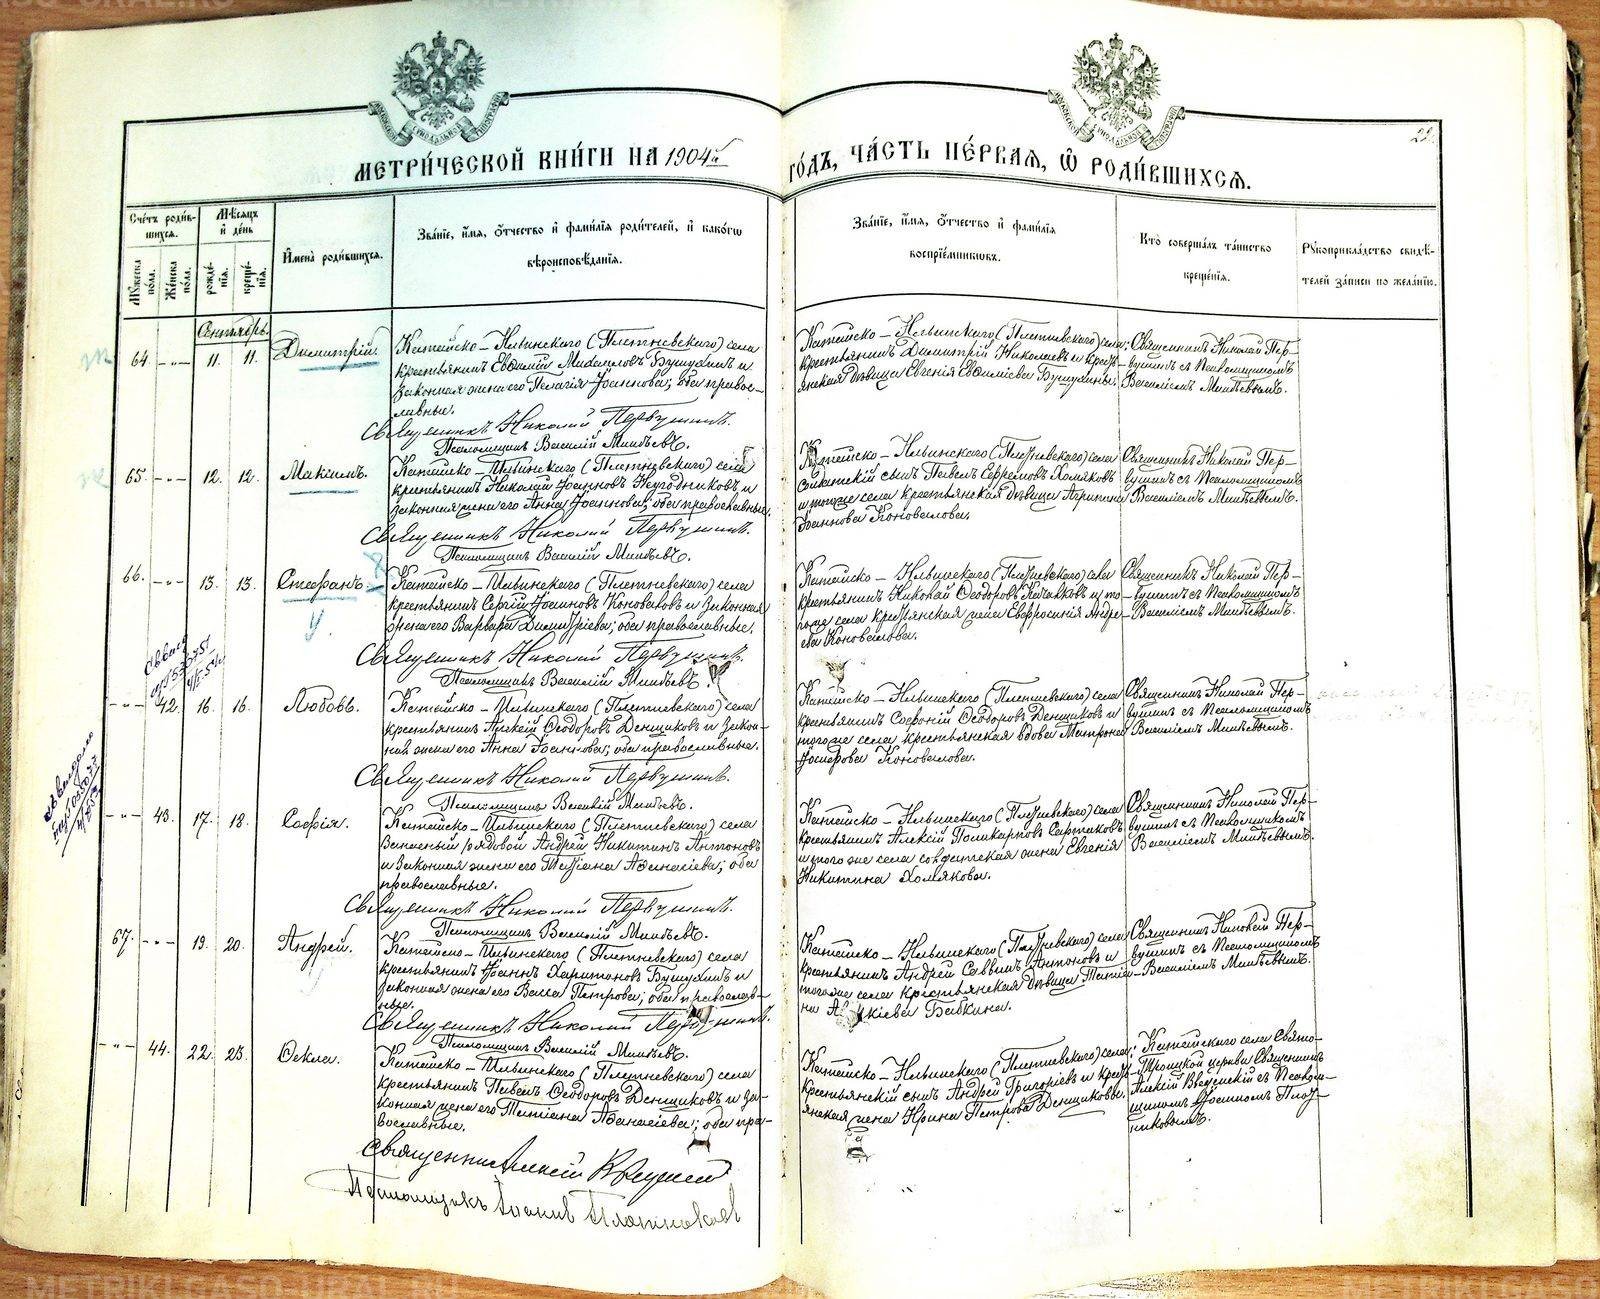 МЕТРИЧЕСКОЙ КНИГИ НА 1904й
ГОДЪ, ЧАСТЬ ПЕРВАЯ, Ѿ РОДИВШИХСЯ.
22.
Счетъ родив-
шихся.
Мѣсяцъ
и день
Имена родившихся.
Званіе, имя, отчество и фамилія родителей, и какогѡ
вѣроисповѣданія.
Званіе, имя, отчество и фамилія
воспріемникѡвъ.
Кто совершалъ таинство
крещенія.
Рукоприкладство свидѣ-
телей записи по желанію.
Мужеска
пола.
Женска
пола.
рожде-
нія.
креще-
нія.
Сентябрь.
64. -"- 11. 11. Димитрій.
Катайско-Ильинскаго (Плетневскаго) села
крестьянинъ Евѳимій Михаиловъ Бушухинъ и
законная жена его Пелагія Іоаннова; оба правос-
лавные.
Священникъ Николай Первушинъ.
Псаломщикъ Василій Минѣевъ.
Катайско-Ильинскаго (Плетневскаго) села
крестьянинъ Димитрій Николаевъ и кресть-
янская дѣвица Евгенія Евѳиміева Бушухины.
Священникъ Николай Пер-
вушинъ съ Псаломщикомъ
Василіемъ Минѣевымъ.
65. -"- 12. 12. Максимъ.
Катайско-Ильинскаго (Плетневскаго) села
крестьянинъ Николай Іоанновъ Неугодниковъ и
законная жена его Анна Іоаннова; оба православные.
Священникъ Николай Первушинъ.
Псаломщикъ Василій Минѣевъ.
Катайско-Ильинскаго (Плетневскаго) села
Солдатскій сынъ Павелъ Ефремовъ Хомяковъ
и того же села крестьянская дѣвица Агрипина
Іоаннова Коновалова.
Священникъ Николай Пер-
вушинъ съ Псаломщикомъ
Василіемъ Минѣевымъ.
66. -"- 13. 13. Стефанъ.
Катайско-Ильинскаго (Плетневскаго) села
крестьянинъ Сергій Іоанновъ Коноваловъ и законная
жена его Варвара Димитріева; оба православные.
Священникъ Николай Первушинъ.
Псаломщикъ Василій Минѣевъ.
Катайско-Ильинскаго (Плетневскаго) села
крестьянинъ Николай Ѳеодоровъ и то-
го же села крестьянская жена Евфросинія Андре-
ева Коновалова.
Священникъ Николай Пер-
вушинъ съ Псаломщикомъ
Василіемъ Минѣевымъ.
-"- 42. 16. 16. Любовь.
Катайско-Ильинскаго (Плетневскаго) села
крестьянинъ Алексѣй Ѳеодоровъ Денщиковъ и закон-
ная жена его Анна Іоаннова; оба православные.
Священникъ Николай Первушинъ.
Псаломщикъ Василій Минѣевъ.
Катайско-Ильинскаго (Плетневскаго) села
крестьянинъ Софроній Ѳеодоровъ Денщиковъ и
того же села крестьянская вдова Матрона
Коновалова.
Священникъ Николай Пер-
вушинъ съ Псаломщикомъ
Василіемъ Минѣевымъ.
-"- 43. 17. 18. Софія.
Катайско-Ильинскаго (Плетневскаго) села
Запасный рядовой Андрей Никитинъ Антоновъ
и законная жена его Татіана Аѳанасіева; оба
православные.
Священникъ Николай Первушинъ.
Псаломщикъ Василій Минѣевъ.
Катайско-Ильинскаго (Плетневскаго) села
крестьянинъ Алексѣй Поликарповъ Сартаковъ
и того же села солдатская жена Евгенія
Никитина Хомякова.
Священникъ Николай Пер-
вушинъ съ Псаломщикомъ
Василіемъ Минѣевымъ.
67. -"- 19. 20. Андрей.
Катайско-Ильинскаго (Плетневскаго) села
крестьянинъ Іоаннъ Харитоновъ Бушухинъ и
законная жена его Васса Петрова; оба православ-
ные.
Священникъ Николай Первушинъ.
Псаломщикъ Василій Минѣевъ.
Катайско-Ильинскаго (Плетневскаго) села
крестьянинъ Андрей Саввинъ Антоновъ и
того же села крестьянская дѣвица Татіа-
на Бабкина.
Священникъ Николай Пер-
вушинъ съ Псаломщикомъ
Василіемъ Минѣевымъ.
-"- 44. 22. 23. Ѳекла.
Катайско-Ильинскаго (Плетневскаго) села
крестьянинъ Павелъ Ѳеодоровъ Денщиковъ и за-
конная жена его Татіана Аѳанасіева; оба пра-
вославные.
Священникъ Алексій
Псаломщикъ Іоаннъ Плотниковъ
Катайско-Ильинскаго (Плетневскаго) села;
крестьянскій сынъ Андрей Григоріевъ и кресть-
янская жена Ирина Петрова Денщиковы.
Катайскаго села Свято-
Троицкой церкви Священникъ
Алексій Введенскій съ Псалом-
щикомъ Іоанномъ Плот-
никовымъ.